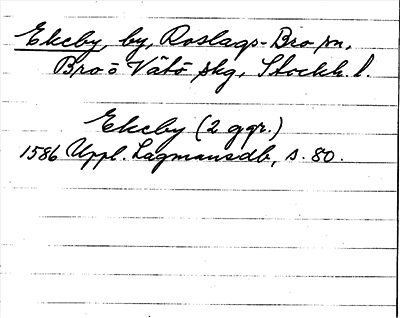 Ekeby, by, Roslags-Bro sn,
Bro o Vätö skg, Stockh. l.
Ekeby (2 ggr.)
1586 Uppl. Lagmansdb, s. 80.